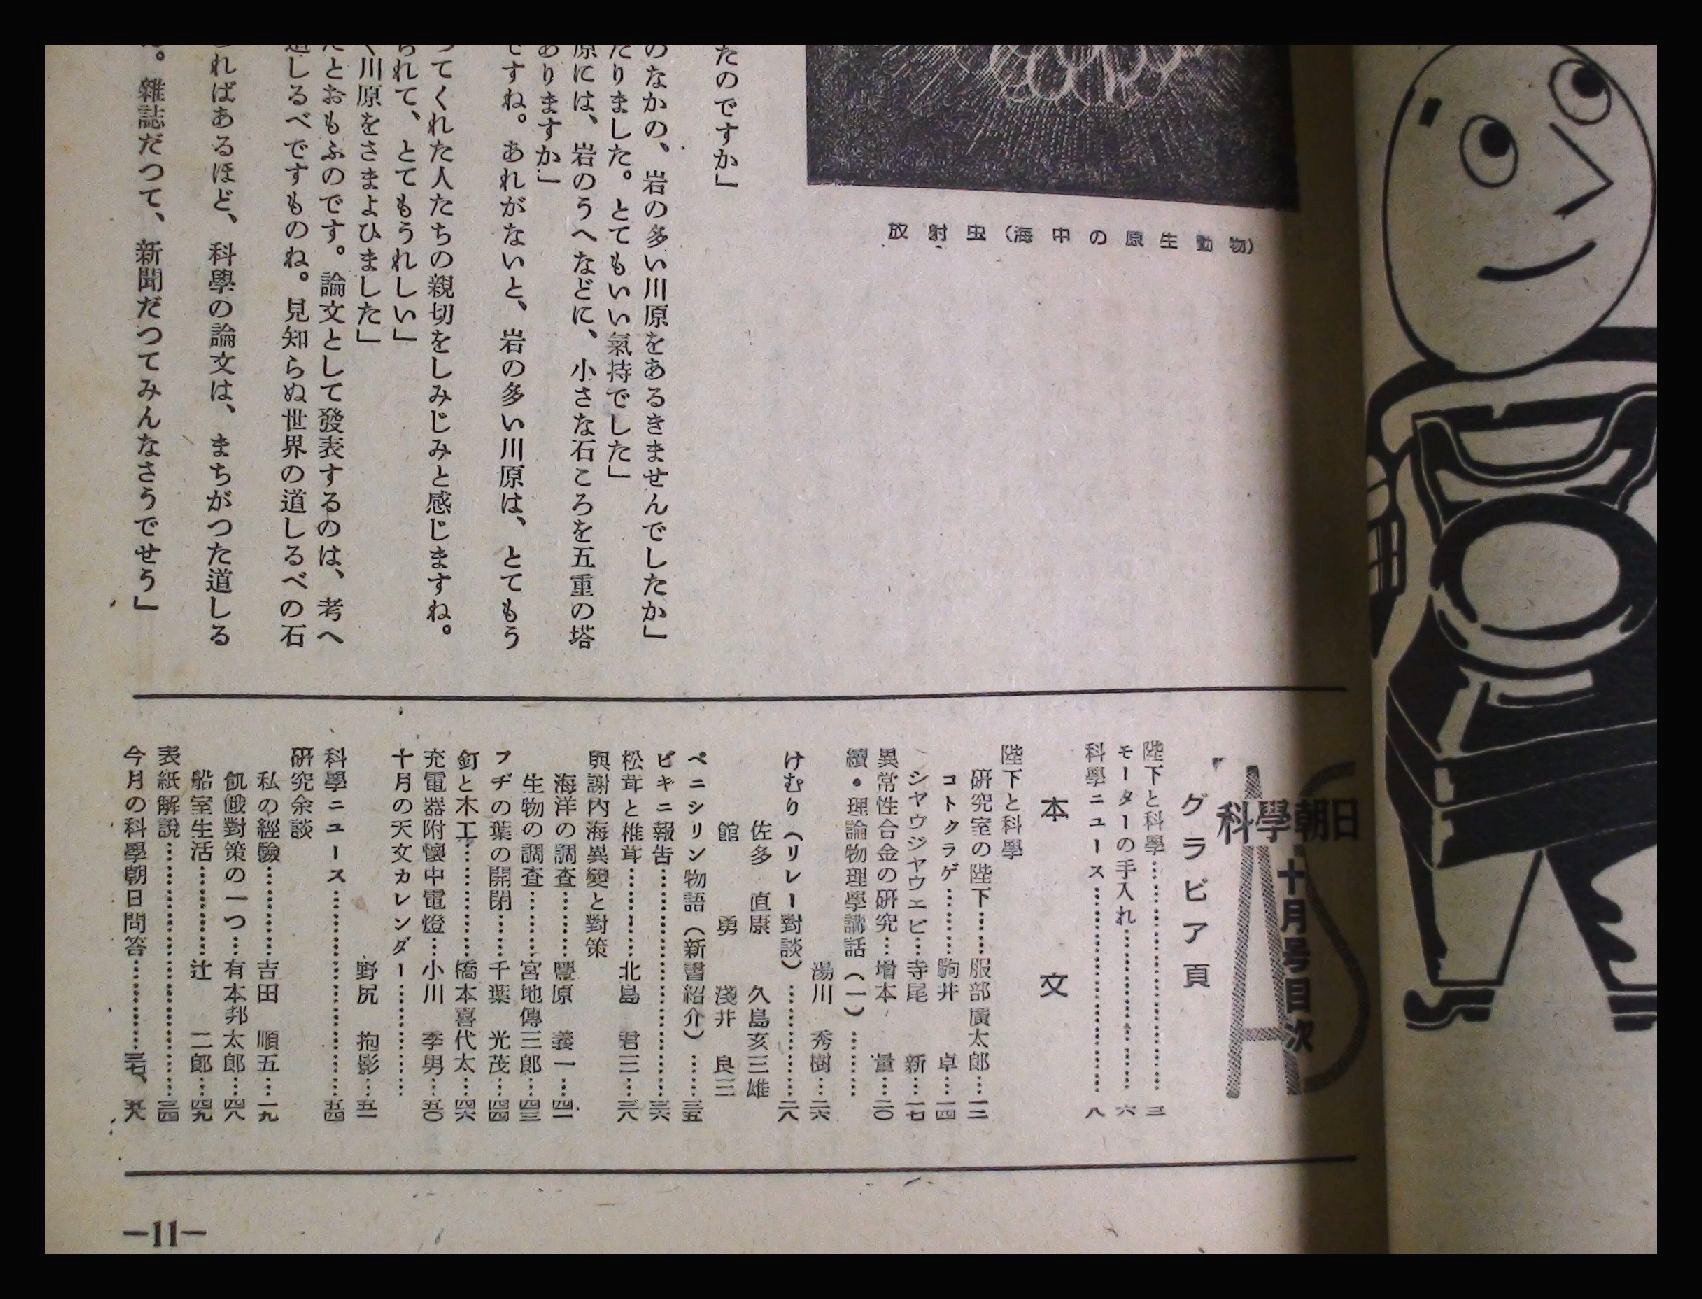 放射虫（海中の原生動物）
たのですか」
のなかの、岩の多い川原をあるきませんでしたか」
たりました。とてもいい氣持でした」
原には、岩のうへなどに、小さな石ころを五重の塔
ありますか」
ですね。あれがないと、岩の多い川原は、とてもう
つてくれた人たちの親切をしみじみと感じますね。
られて、とてもうれしい」
く川原をさまよひました」
たとおもふのです。論文として發表するのは、考へ
道しるべですものね。見知らぬ世界の道しるべの石
ればあるほど、科學の論文は、まちがつた道しる
。雜誌だつて、新聞だつてみんなさうでせう」
科學朝日
十月号目次
グラビア頁
陛下と科學……三
モーターの手入れ……六
科學ニュース……八
本文
陛下と科學
研究室の陛下……服部廣太郎…一二
コトクラゲ……駒井 卓…一四
シヤウジヤウエビ…寺尾 新…一七
異常性合金の研究…増本 量…二〇
續・理論物理學講話（一）……
湯川 秀樹…二六
けむり（リレー對談）……二八
佐多 直康 久島亥三雄
館 勇 淺井 良三
ペニシリン物語（新書紹介）……三五
ビキニ報告……三六
松茸と椎茸……北島 君三…三八
與謝内海異變と對策
海洋の調査……豐原 義一…四一
生物の調査……宮地傳三郎…四三
フヂの葉の開閉……千葉 光茂…四四
釘と木工……橋本喜代太…四六
充電器附懷中電燈…小川 季男…五〇
十月の天文カレンダー……
野尻 抱影…五一
科學ニュース……五四
研究余談
私の經驗……吉田 順五…一九
飢餓對策の一つ…有本邦太郎…四八
船室生活……辻 二郎…四九
表紙解說……三四
今月の科學朝日問答……
—11—